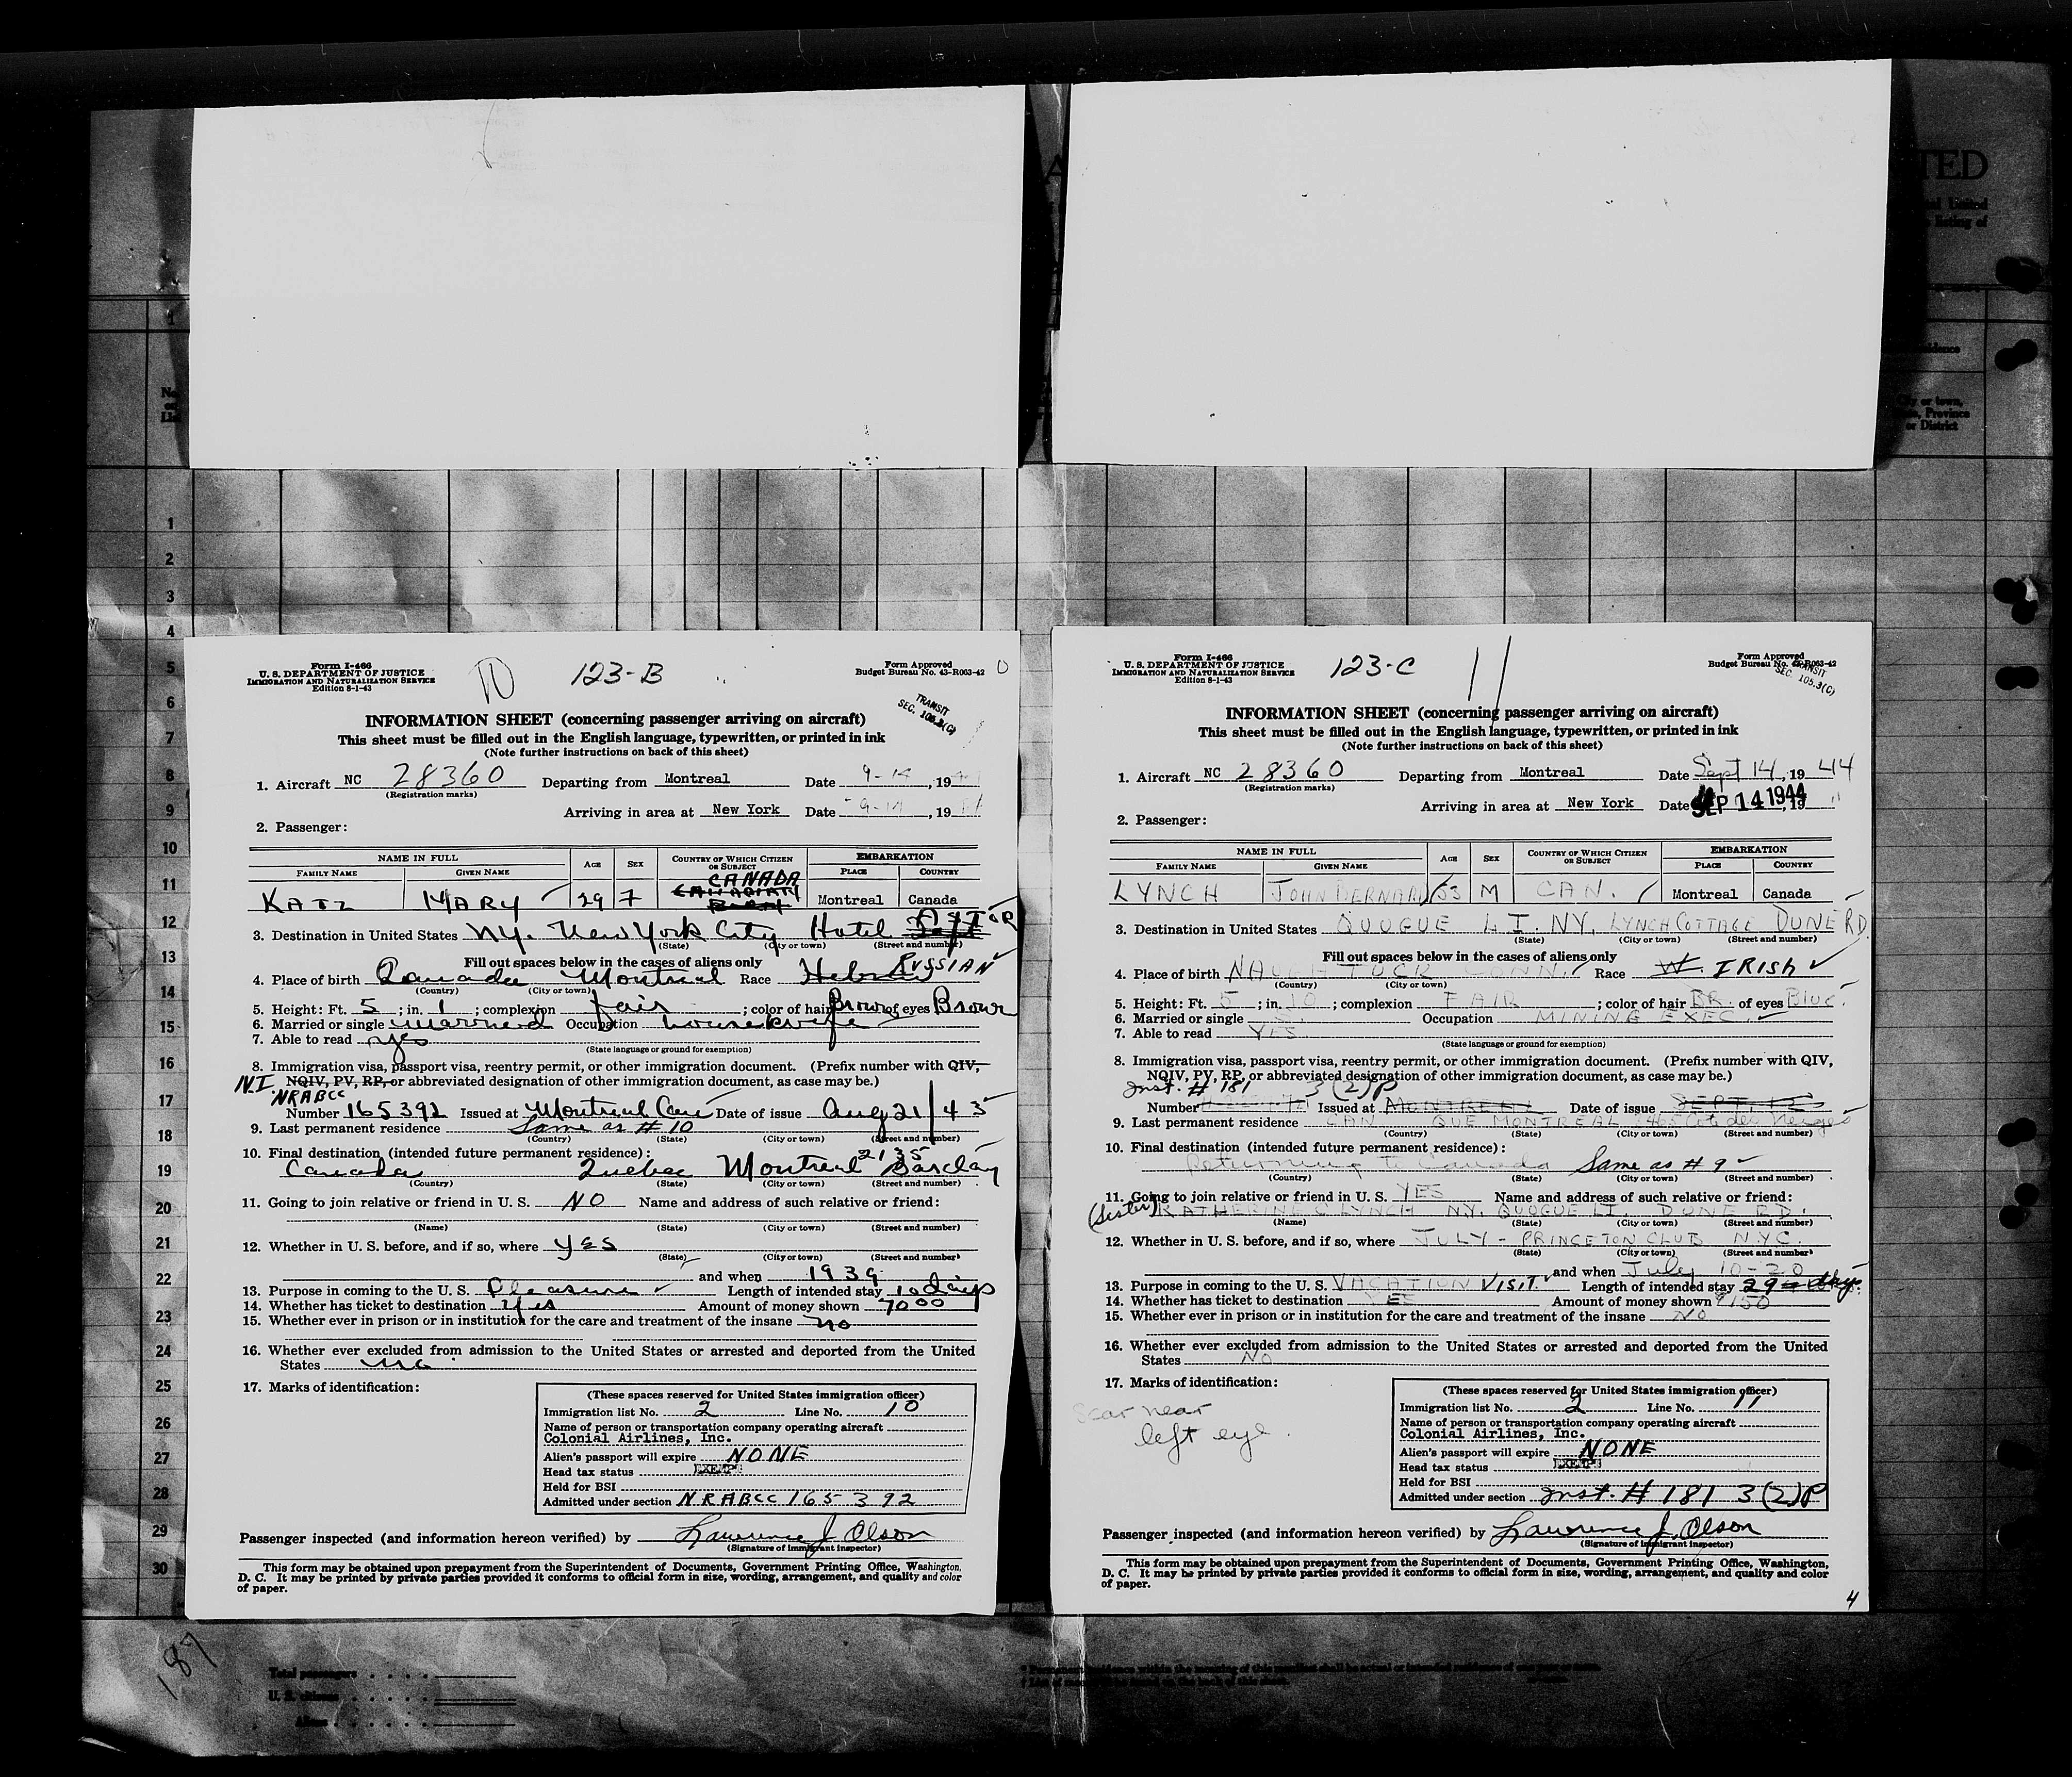 TED
1
City or town,
or District
1
2
3
4
5
6
7
8
9
10
11
12
13
14
15
16
17
18
19
20
21
22
23
24
25
26
27
28
29
30
Form I-466
U. S. DEPARTMENT OF JUSTICE
IMMIGRATION AND NATURALIZATION SERVICE
Edition 8-1-43
10
123-B
Form Approved
Budget Bureau No. 43-R063-42
TRANSIT
SEC. 105.3(C)
INFORMATION SHEET (concerning passenger arriving on aircraft)
This sheet must be filled out in the English language, typewritten, or printed in ink
(Note further instructions on back of this sheet)
1. Aircraft NC 28360 Departing from Montreal Date 9-14, 19
(Registration marks)
Arriving in area at New York Date 9-14, 19
2. Passenger:
NAME IN FULL AGE SEX COUNTRY OF WHICH CITIZEN OR SUBJECT EMBARKATION
FAMILY NAME GIVEN NAME PLACE COUNTRY
CANADA
KATZ MARY 29 F CANADIAN Montreal Canada
ASTOR
3. Destination in United States NY. New York City Hotel Taft
(State) (City or town) (Street and number)
Fill out spaces below in the cases of aliens only
RUSSIAN
4. Place of birth Canada Montreal Race Hebrew
(Country) (City or town)
5. Height: Ft. 5; in. 1; complexion fair; color of hair Brown of eyes Brown
6. Married or single married Occupation housekwife
7. Able to read yes
(State language or ground for exemption)
8. Immigration visa, passport visa, reentry permit, or other immigration document. (Prefix number with QIV,
N.I. NQIV, PV, RP, or abbreviated designation of other immigration document, as case may be.)
NRABCC
Number 165392 Issued at Montreal Can Date of issue Aug 21/43
9. Last permanent residence Same as # 10
(Country) (State) (City or town) (Street and number)
10. Final destination (intended future permanent residence):
Canada Quebec Montreal 2135 Barclay
(Country) (State) (City or town) (Street and number)
11. Going to join relative or friend in U. S. NO Name and address of such relative or friend:
(Name) (State) (City or town) (Street and number)
12. Whether in U. S. before, and if so, where YES
(State) (City or town) (Street and number)
and when 1939
13. Purpose in coming to the U. S. Pleasure Length of intended stay 10 days
14. Whether has ticket to destination yes Amount of money shown 7000
15. Whether ever in prison or in institution for the care and treatment of the insane no
16. Whether ever excluded from admission to the United States or arrested and deported from the United
States no
17. Marks of identification:
(These spaces reserved for United States immigration officer)
Immigration list No. 2 Line No. 10
Name of person or transportation company operating aircraft
Colonial Airlines, Inc.
Alien's passport will expire NONE
Head tax status EXEMPT
Held for BSI
Admitted under section NRABCC 165392
Passenger inspected (and information hereon verified) by Lawrence J. Olson
(Signature of immigrant inspector)
This form may be obtained upon prepayment from the Superintendent of Documents, Government Printing Office, Washington,
D. C. It may be printed by private parties provided it conforms to official form in size, wording, arrangement, and quality and color
of paper.
Form I-466
U. S. DEPARTMENT OF JUSTICE
IMMIGRATION AND NATURALIZATION SERVICE
Edition 8-1-43
123-C
11
Form Approved
Budget Bureau No. 43-R063-42
TRANSIT
SEC. 105.3(C)
INFORMATION SHEET (concerning passenger arriving on aircraft)
This sheet must be filled out in the English language, typewritten, or printed in ink
(Note further instructions on back of this sheet)
1. Aircraft NC 28360 Departing from Montreal Date Sept 14, 19 44
(Registration marks)
Arriving in area at New York Date SEP 14 1944, 19
2. Passenger:
NAME IN FULL AGE SEX COUNTRY OF WHICH CITIZEN OR SUBJECT EMBARKATION
FAMILY NAME GIVEN NAME PLACE COUNTRY
LYNCH JOHN BERNARD 53 M CAN. Montreal Canada
3. Destination in United States QUOGUE L I. NY. LYNCH COTTAGE DUNE RD
(State) (City or town) (Street and number)
Fill out spaces below in the cases of aliens only
4. Place of birth NAUGHTUCK CONN. Race W. IRISH
(Country) (City or town)
5. Height: Ft. 5; in. 10; complexion FAIR; color of hair BR. of eyes Blue.
6. Married or single S. Occupation MINING EXEC.
7. Able to read YES
(State language or ground for exemption)
8. Immigration visa, passport visa, reentry permit, or other immigration document. (Prefix number with QIV,
NQIV, PV, RP, or abbreviated designation of other immigration document, as case may be.)
Inst. # 181 3(2)P
Number Issued at MONTREAL Date of issue SEPT.
9. Last permanent residence CAN QUE MONTREAL Cote des Neiges
(Country) (State) (City or town) (Street and number)
10. Final destination (intended future permanent residence):
Returning to Canada Same as # 9
(Country) (State) (City or town) (Street and number)
11. Going to join relative or friend in U. S. YES Name and address of such relative or friend:
(Sister) KATHERINE C LYNCH NY. QUOGUE LI. DUNE RD.
(Name) (State) (City or town) (Street and number)
12. Whether in U. S. before, and if so, where JULY - PRINCETON CLUB NYC.
(State) (City or town) (Street and number)
and when July 10-20
13. Purpose in coming to the U. S. VACATION VISIT Length of intended stay 29 days
14. Whether has ticket to destination YES Amount of money shown 150
15. Whether ever in prison or in institution for the care and treatment of the insane NO
16. Whether ever excluded from admission to the United States or arrested and deported from the United
States NO
17. Marks of identification:
Scar near
left eye.
(These spaces reserved for United States immigration officer)
Immigration list No. 2 Line No. 11
Name of person or transportation company operating aircraft
Colonial Airlines, Inc.
Alien's passport will expire NONE
Head tax status EXEMPT
Held for BSI
Admitted under section Inst. # 181 3(2)P
Passenger inspected (and information hereon verified) by Lawrence J. Olson
(Signature of immigrant inspector)
This form may be obtained upon prepayment from the Superintendent of Documents, Government Printing Office, Washington,
D. C. It may be printed by private parties provided it conforms to official form in size, wording, arrangement, and quality and color
of paper.
4
187
Total passengers
U. S. citizens
Aliens